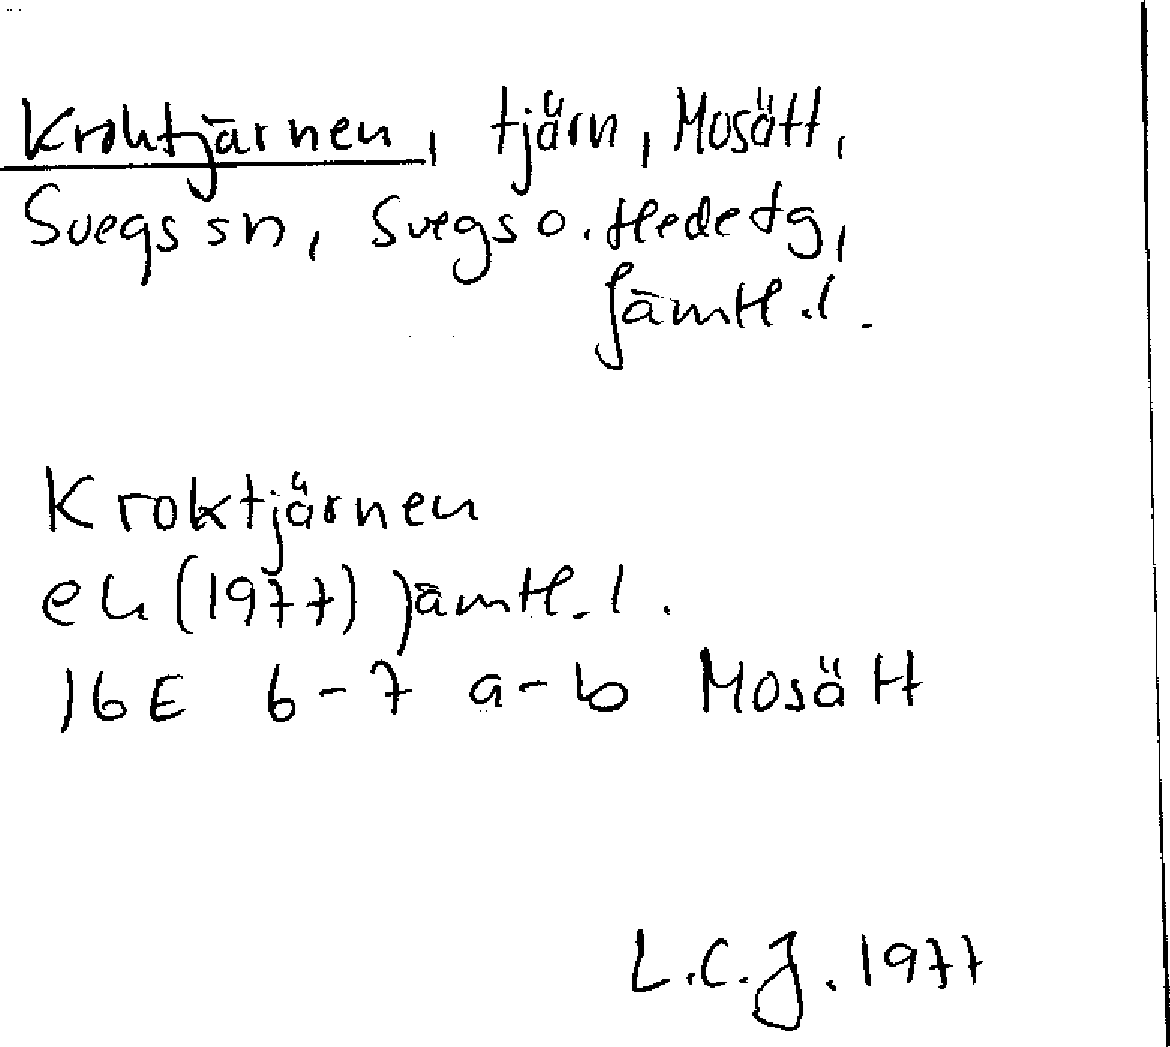 Kroktjärnen, tjärn, Mosätt,
Svegs sn, Svegs o. Hede tg,
Jämtl.l.
Kroktjärnen
ek (1977) Jämtl.l.
16E 6-7 a-b Mosätt
L.C.J. 1977